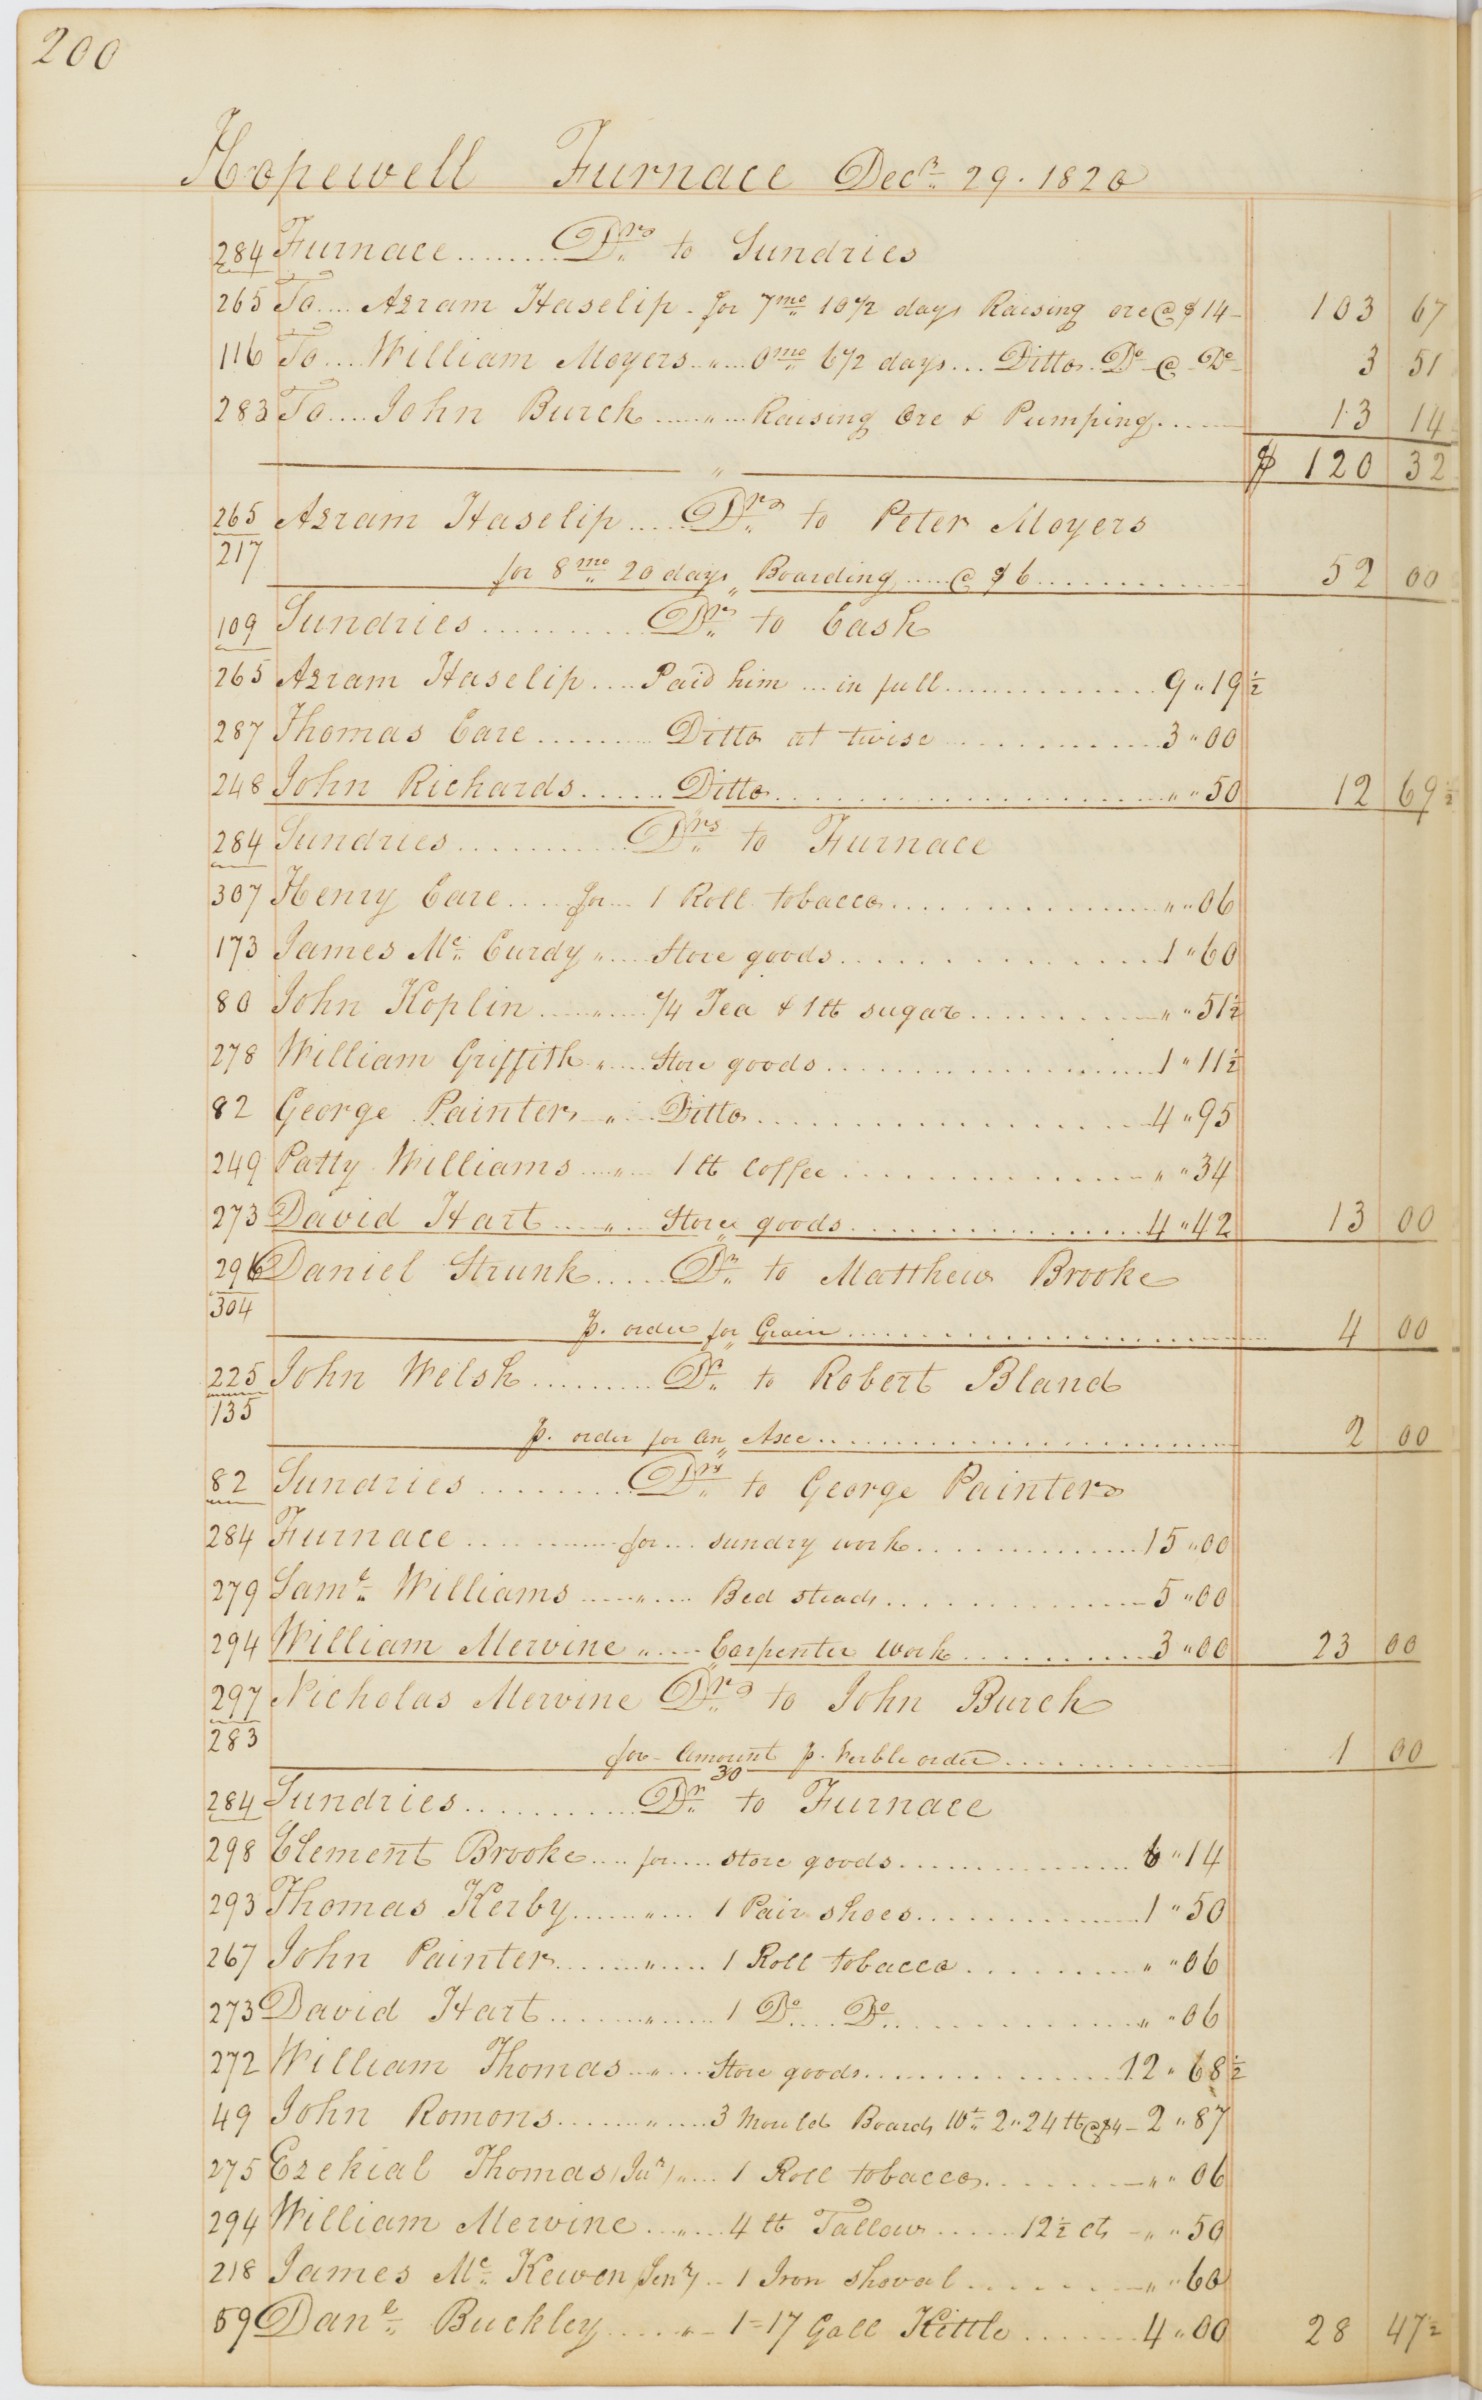 200
Hopewell Furnace Decr. 29. 1820
284 Furnace ........ Drs to Sundries
265 To .... Azram Haselip - for 7mo 10 1/2 days Raising ore @ $14 - 103 67
116 To .... William Moyers " ... 0mo 6 1/2 days ... Ditto. Do @ Do - 3 51
283 To .... John Burch ..... " ... Raising Ore & Pumping ..... 13 14
" $ 120 32
265 Azram Haselip ..... Drs to Peter Moyers
217
for 8mo 20 days Boarding ..... @ $6 ............ 52 00
"
109 Sundries .......... Drs to Cash
265 Azram Haselip .... Paid him ... in full ............. 9 " 19 1/2
287 Thomas Care ........ Ditto at twise ............. 3 " 00
248 John Richards ...... Ditto ..................... " " 50 12 69 1/2
"
284 Sundries ........... Drs to Furnace
307 Henry Care ..... for ... 1 Roll tobacco ............... " " 06
173 James Mc. Curdy " .... Store goods ............... 1 " 60
80 John Koplin ..... " .... 1/4 Tea & 1 lb sugar ........... " " 51 1/2
278 William Griffith " .... Store goods .................. 1 " 11 1/2
82 George Painter " .... Ditto .................... 4 " 95
249 Patty Williams .... " .... 1 lb Coffee ................. " " 34
273 David Hart .... " .... Store goods ................. 4 " 42 13 00
"
296 Daniel Strunk ..... Dr. to Matthew Brooke
304
p. order for Grain ........................ 4 00
"
225 John Welsh ......... Dr. to Robert Bland
135
p. order for an Axe ........................ 2 00
"
82 Sundries ......... Drs to George Painter
284 Furnace ............ for ... sundry work ............... 15 " 00
279 Saml. Williams ..... " .... Bed steads ............... 5 " 00
294 William Mervine " .... Carpenter work ............ 3 " 00 23 00
"
297 Nicholas Mervine Drs to John Burch
283
for - Amount p. Verble order ............. 1 00
30
284 Sundries ........... Dr. to Furnace
298 Clement Brooke .... for .... store goods ................ 6 " 14
293 Thomas Kerby ..... " .... 1 Pair shoes ............... 1 " 50
267 John Painter ...... " .... 1 Roll tobacco ........... " " 06
273 David Hart ....... " ..... 1 Do .... Do ............... " " 06
272 William Thomas " .... Store goods ............... 12 " 68 1/2
49 John Romons ...... " .... 3 Mould Boards 10t. 2 " 24 lb @ $4 - 2 " 87
275 Ezekial Thomas (Junr) " .... 1 Roll tobacco ........ " " 06
294 William Mervine ... " .... 4 lb Tallow ..... 12 1/2 cts - " " 50
218 James Mc. Kewen (Senr) .. 1 Iron shoval ........ " " 60
59 Danl. Buckley ..... " - 1 = 17 Gall Kittle ........ 4 " 00 28 47 1/2